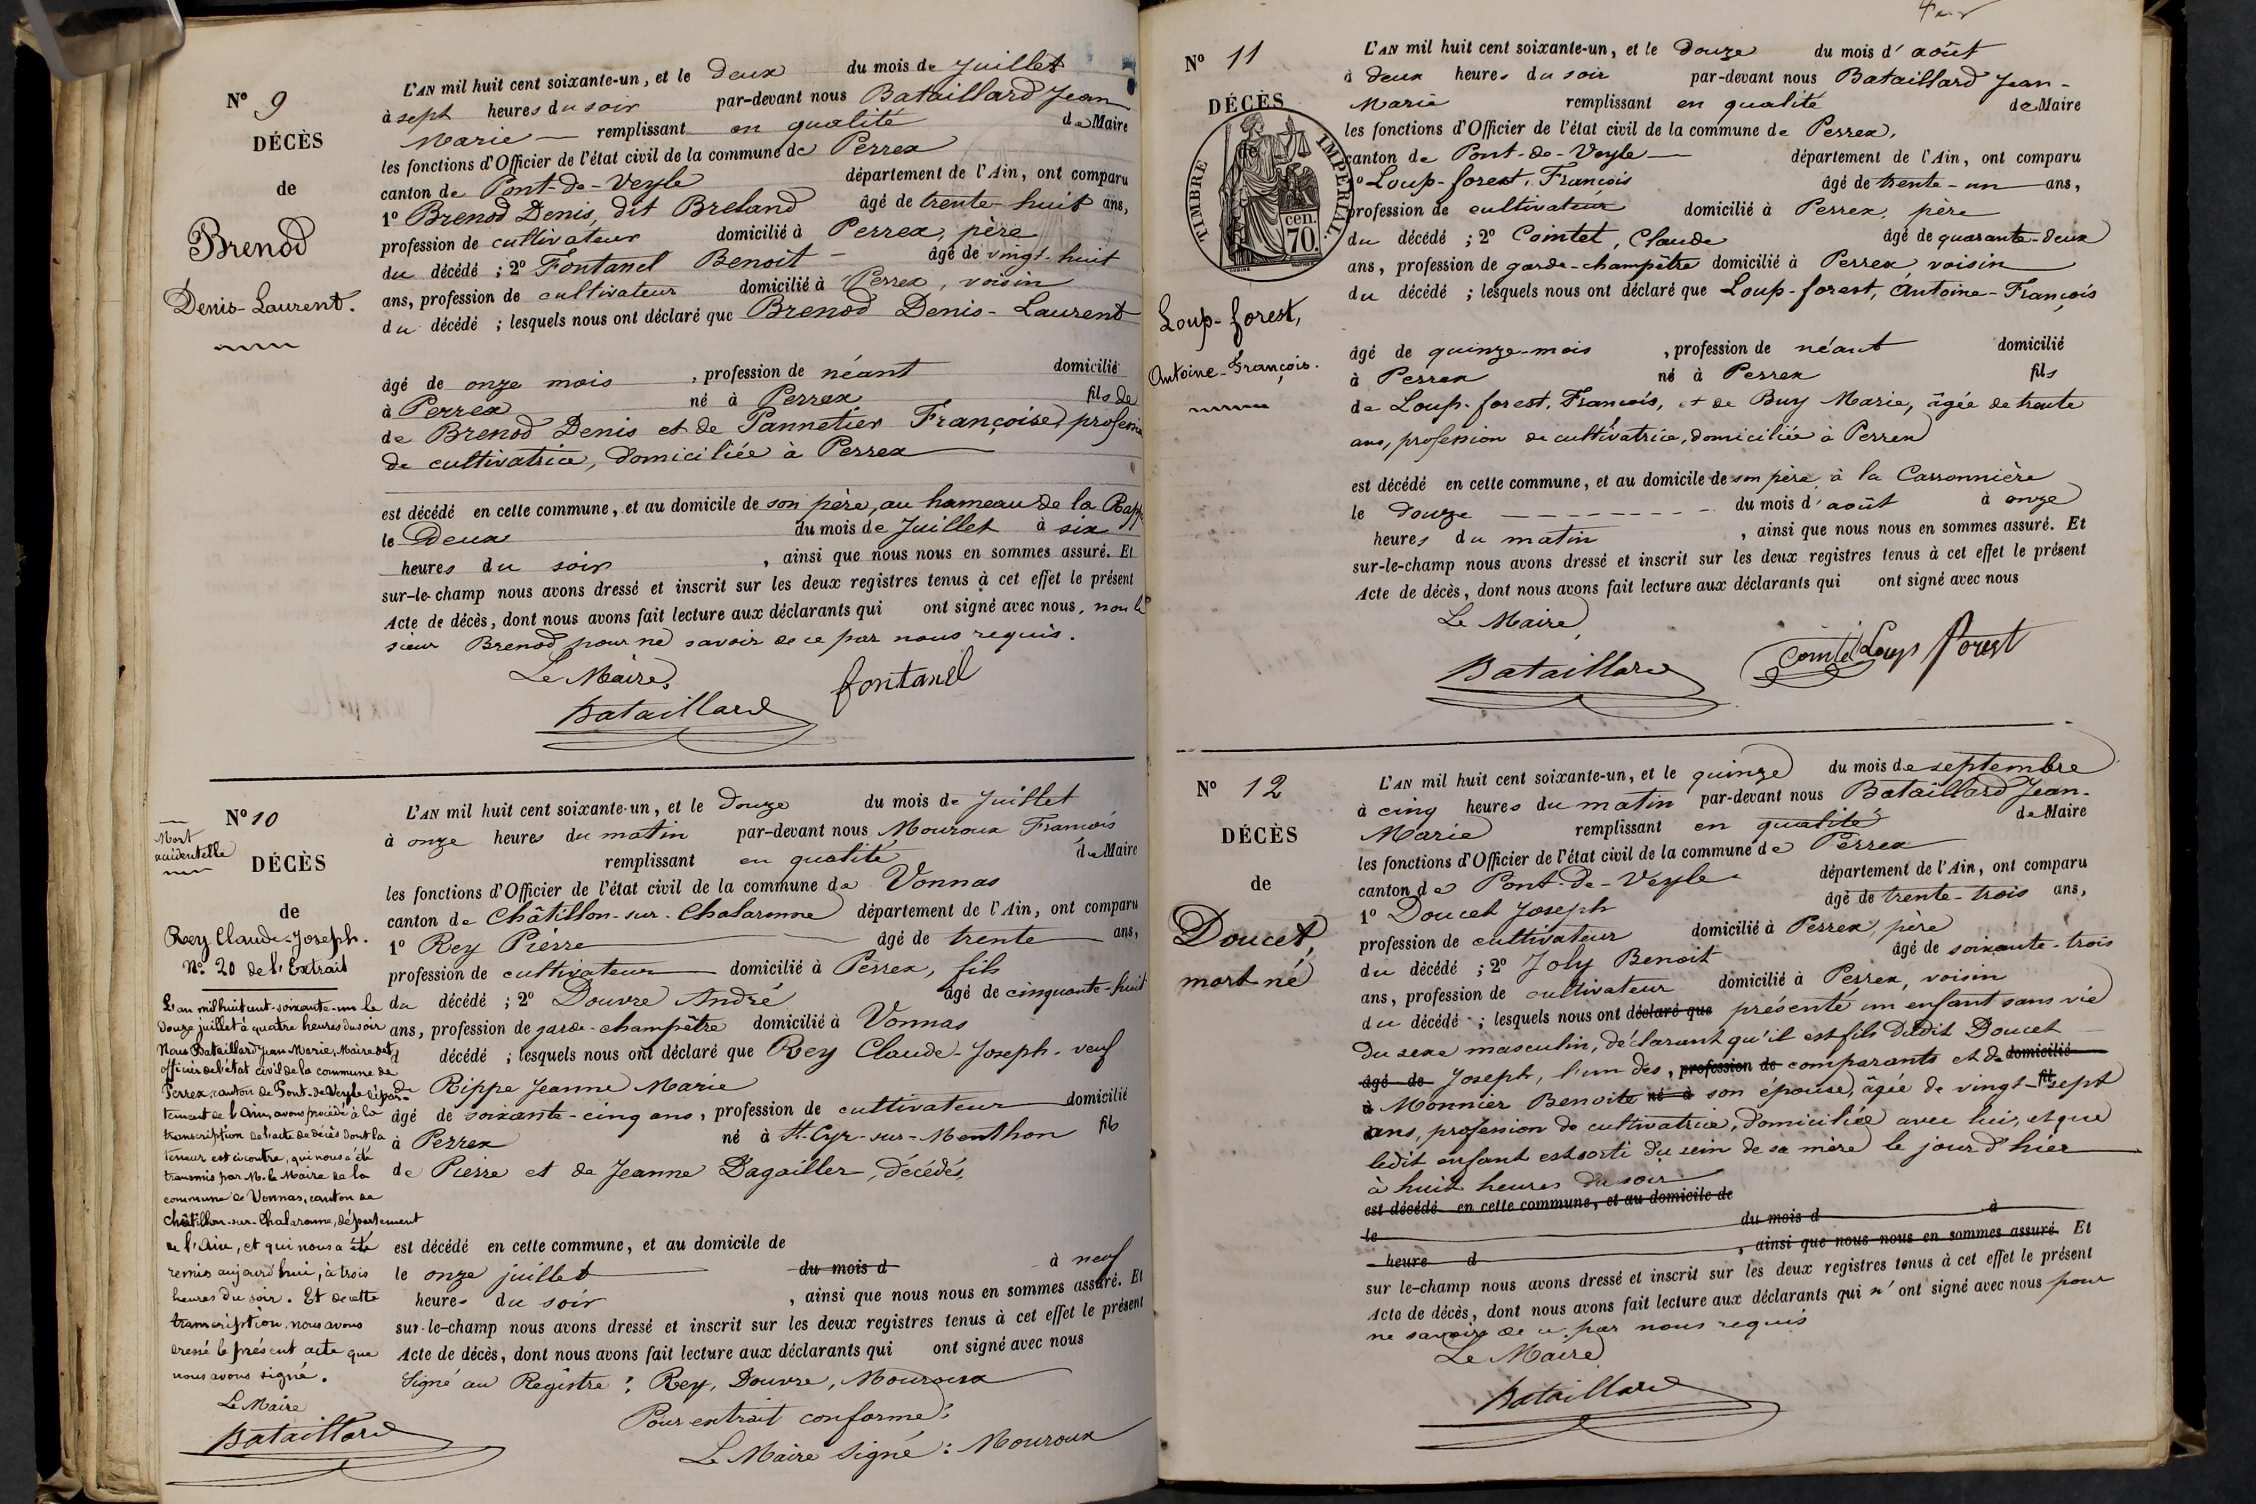 N° 9
DÉCÈS
de
Brenod
Denis-Laurent.
L'AN mil huit cent soixante-un, et le deux du mois de Juillet
à sept heures du soir par-devant nous Bataillard Jean
Marie remplissant en qualité de Maire
les fonctions d'Officier de l'état civil de la commune de Perrex
canton de Pont-de-Veyle département de l'Ain, ont comparu
1° Brenod Denis, dit Breland âgé de trente-huit ans,
profession de cultivateur domicilié à Perrex, père
du décédé ; 2° Fontanel Benoit âgé de vingt-huit
ans, profession de cultivateur domicilié à Perrex, voisin
du décédé ; lesquels nous ont déclaré que Brenod Denis-Laurent
âgé de onze mois, profession de néant domicilié
à Perrex né à Perrex fils de
de Brenod Denis et de Pannetier Françoise, profession
de cultivatrice, domiciliée à Perrex
est décédé en cette commune, et au domicile de son père, au hameau de la
le Deux du mois de Juillet à six
heures du soir, ainsi que nous nous en sommes assuré. Et
sur-le-champ nous avons dressé et inscrit sur les deux registres tenus à cet effet le présent
Acte de décès, dont nous avons fait lecture aux déclarants qui ont signé avec nous, non le
sieur Brenod pour ne savoir de ce par nous requis.
Le Maire,
Bataillard fontanel
N° 10
Mort
accidentelle
DÉCÈS
de
Rey Claude-Joseph.
N° 20 de l'Extrait
L'an mil huit cent-soixante-un le
douze juillet à quatre heures du soir
Nous Bataillard Jean-Marie, Maire et
officier de l'état civil de la commune de
Perrex, canton de Pont-de-Veyle dépar-
tement de l'Ain, avons procédé à la
transcription de l'acte de décès dont la
teneur est ci contre, qui nous a été
transmis par M. le Maire de la
commune de Vonnas, canton de
Châtillon-sur-Chalaronne, département
de l'Ain, et qui nous a été
remis aujourd'hui, à trois
heures du soir. Et de cette
transcription, nous avons
dressé le présent acte que
nous avons signé.
Le Maire
Bataillard
L'AN mil huit cent soixante-un, et le Douze du mois de Juillet
à onze heures du matin par-devant nous Mouroux François
remplissant en qualité de Maire
les fonctions d'Officier de l'état civil de la commune de Vonnas
canton de Châtillon-sur-Chalaronne département de l'Ain, ont comparu
1° Rey Pierre âgé de trente ans,
profession de cultivateur domicilié à Perrex, fils
du décédé ; 2° Douvre André âgé de cinquante-huit
ans, profession de garde-champêtre domicilié à Vonnas
d décédé ; lesquels nous ont déclaré que Rey Claude-Joseph, veuf
de Rippe Jeanne Marie
âgé de soixante-cinq ans, profession de cultivateur domicilié
à Perrex né à St-Cyr-sur-Menthon fils
de Pierre et de Jeanne Dagailler, décédés,
est décédé en cette commune, et au domicile de
le onze juillet du mois d à neuf
heures du soir, ainsi que nous nous en sommes assuré. Et
sur-le-champ nous avons dressé et inscrit sur les deux registres tenus à cet effet le présent
Acte de décès, dont nous avons fait lecture aux déclarants qui ont signé avec nous
Signé au Registre : Rey, Douvre, Mouroux
Pour extrait conforme :
Le Maire Signé : Mouroux
N° 11
DÉCÈS
de
TIMBRE IMPÉRIAL.
cen.
70.
Loup-forest,
Antoine-François.
L'AN mil huit cent soixante-un, et le douze du mois d'août
à deux heures du soir par-devant nous Bataillard Jean-
Marie remplissant en qualité de Maire
les fonctions d'Officier de l'état civil de la commune de Perrex,
canton de Pont-de-Veyle département de l'Ain, ont comparu
° Loup-forest, François âgé de trente-un ans,
profession de cultivateur domicilié à Perrex, père
du décédé ; 2° Cointet, Claude âgé de quarante-deux
ans, profession de garde-champêtre domicilié à Perrex, voisin
du décédé ; lesquels nous ont déclaré que Loup-forest, Antoine-François
âgé de quinze-mois, profession de néant domicilié
à Perrex né à Perrex fils
de Loup-forest, François, et de Buy Marie, âgée de trente
ans, profession de cultivatrice, domiciliée à Perrex
est décédé en cette commune, et au domicile de son père, à la Carronnière
le douze du mois d'août à onze
heures du matin, ainsi que nous nous en sommes assuré. Et
sur-le-champ nous avons dressé et inscrit sur les deux registres tenus à cet effet le présent
Acte de décès, dont nous avons fait lecture aux déclarants qui ont signé avec nous
Le Maire,
Bataillard Cointet Loup forest
N° 12
DÉCÈS
de
Doucet,
mort né
L'AN mil huit cent soixante-un, et le quinze du mois de septembre
à cinq heures du matin par-devant nous Bataillard Jean-
Marie remplissant en qualité de Maire
les fonctions d'Officier de l'état civil de la commune de Perrex
canton de Pont-de-Veyle département de l'Ain, ont comparu
1° Doucet Joseph âgé de trente-trois ans,
profession de cultivateur domicilié à Perrex, père
du décédé ; 2° Joly Benoit âgé de soixante-trois
ans, profession de cultivateur domicilié à Perrex, voisin
du décédé ; lesquels nous ont déclaré que présenté un enfant sans vie
du sexe masculin, déclarant qu'il est fils dudit Doucet
âgé de Joseph, l'un des, profession de comparants et de domicilié
à Monnier Benoite né à son épouse, âgée de vingt-fils sept
ans, profession de cultivatrice, domiciliée avec lui, et que
ledit enfant est sorti du sein de sa mère le jour d'hier
à huit heures du soir
est décédé en cette commune, et au domicile de
le du mois d à
heure d , ainsi que nous nous en sommes assuré. Et
sur le-champ nous avons dressé et inscrit sur les deux registres tenus à cet effet le présent
Acte de décès, dont nous avons fait lecture aux déclarants qui n'ont signé avec nous pour
ne savoir de ce par nous requis
Le Maire
Bataillard